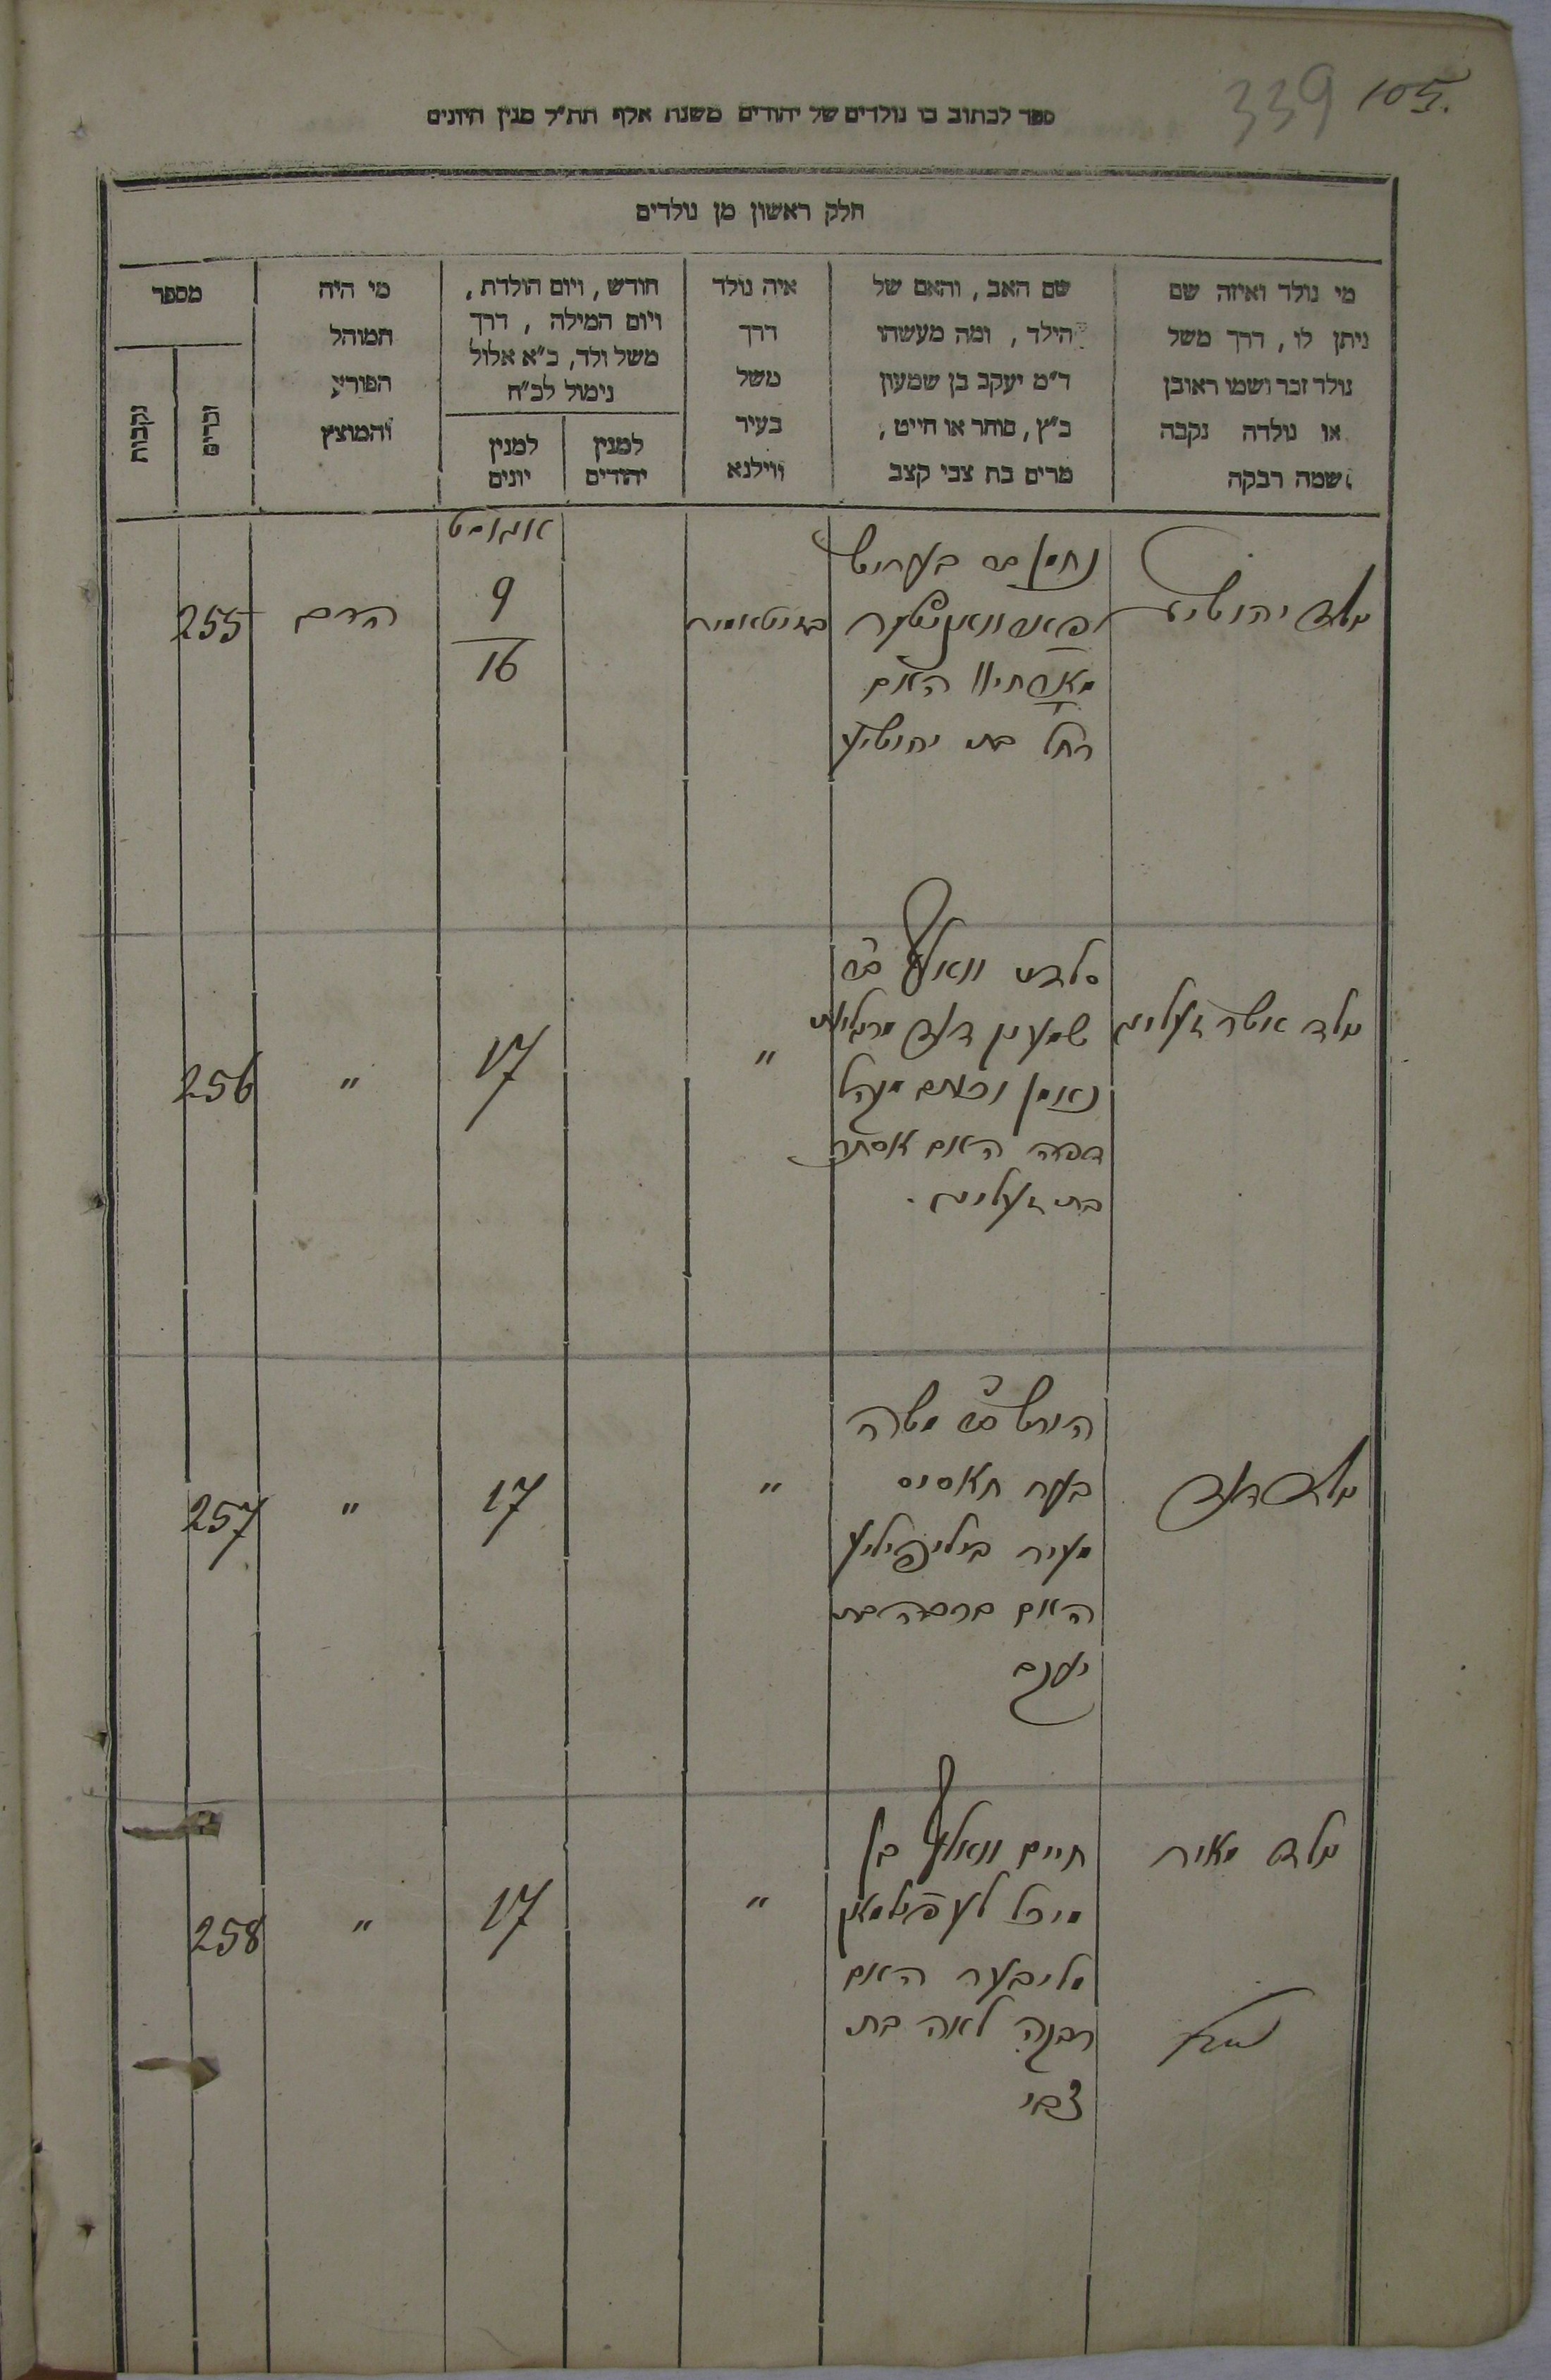 339 105.
ספר לכתוב בו נולדים של יהודים משנת אלף תת״ל מנין היונים
חלק ראשון מן נולדים
מי נולד ואיזה שם
ניתן לו, דרך משל
נולד זכר ושמו ראובן
או נולדה נקבה
שמה רבקה
שם האב, והאם של
הילד, ומה מעשהו
ד״מ יעקב בן שמעון
כ״ץ, סוחר או חייט,
מרים בת צבי קצב
איה נולד
דרך
משל
בעיר
ווילנא
חודש, ויום הולדת,
ויום המילה, דרך
משל ולד, כ״א אלול
נימול לכ״ח
למנין
יהודים
למנין
יונים
מי היה
המוהל
הפורע
והמוצץ
מספר
זכרים
נקבות
נולד יהושיע
נחמן
האם
רחל בת יהושיע
בזיטאמיר
אוגוסט
9
16
הרב
255
נולד אשר זעליג
וואלף ב״ר
שמעון דוד
נאומן
האם אסתר
בת זעליג.
"
17
"
256
נולד דוד
הירש ב״ר משה
בער
מעיר
האם ברכה בת
יעקב
"
17
"
257
נולד מאיר
חיים וואלף בן
מיכל
האם
רבקה לאה בת
צבי
"
17
"
258